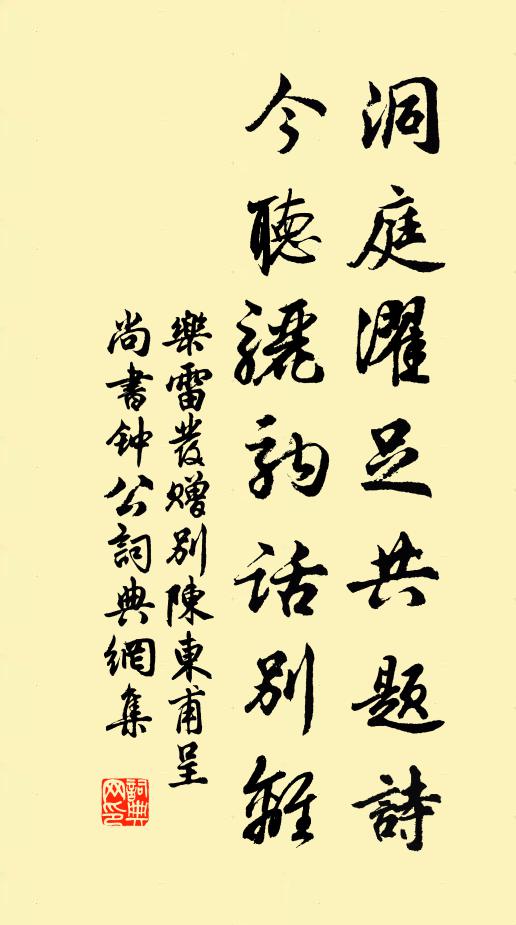 洞庭濯足共題詩
今聽驪駒話別離
樂雷發贈別陳東甫呈
尚書钟公詞典網集
詞典网印